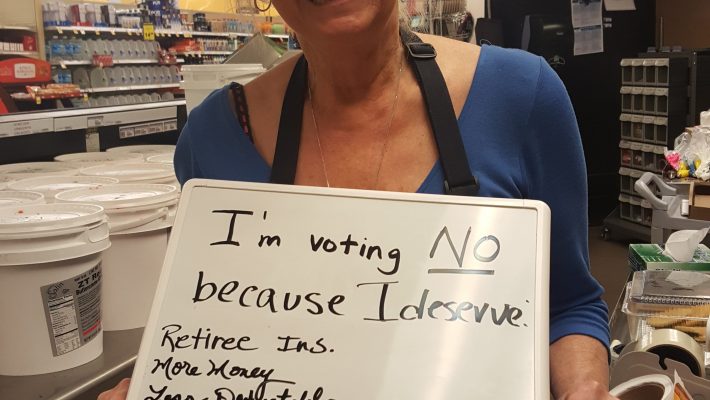 I'm voting NO
because I deserve:
Retiree Ins.
More Money
Less Deductible